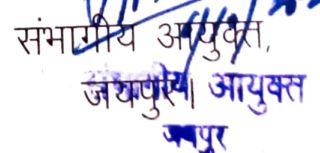 संभागीय आयुक्त,
जयपुर। आयुक्त
जयपुर